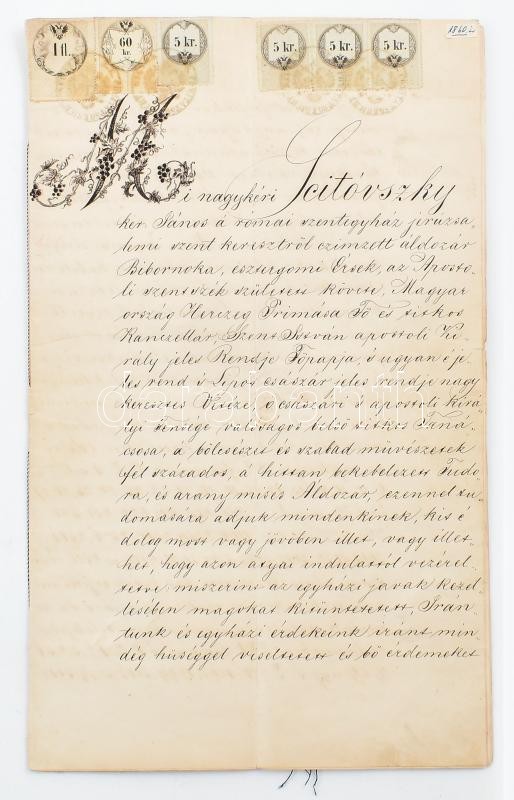 1 fl.
60 kr.
5 kr.
5 kr.
5 kr.
5 kr.
1860
Mi nagykéri Scitóvszky
ker. János á római szentegyház jeruzsa„
lemi szent keresztről czimzett áldozár
Bibornoka, esztergomi Ersek, az Aposto„
li szentszék született követe, Magyar
ország Herczeg Primása Fő és titkos
Kanczellár, Szent István apostoli Ki„
rály jeles Rendje Főpapja, s ugyan é je„
les rend s Lipos császár jeles rendje nagy
keresztes Viteze, ő császári s apostoli kirá„
lyi Fensége valóságos belső titkos Taná„
csosa, a bölcsészet és szabad müvészetek
fél százados, á hittan bekebelezett Tudo„
ra, és arany misés Áldozár, ezennel tu„
domására adjuk mindenkinek, kis é
dolog most vagy jövőben illet, vagy illet„
het, hogy azon atyai indulattól vizérel„
tetve miszerint az egyházi javak kezel„
lésében magokat kitüntetett, Irán„
tunk és egyházi érdekeink iránt min„
dég hüséggel viseltetett és bő érdemeket
darabanth